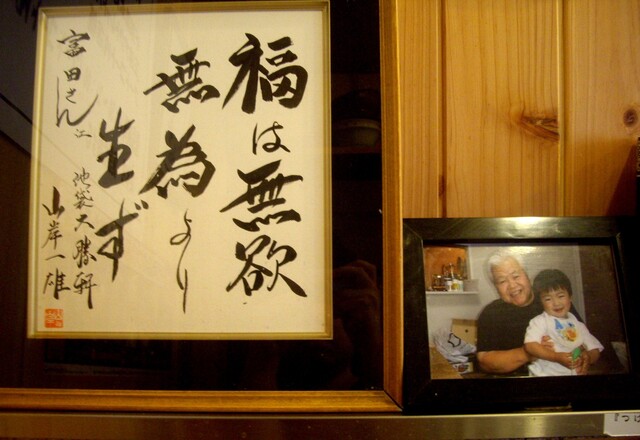 福は無欲
無為より
生ず
富田さん江
池袋大勝軒
山岸一雄